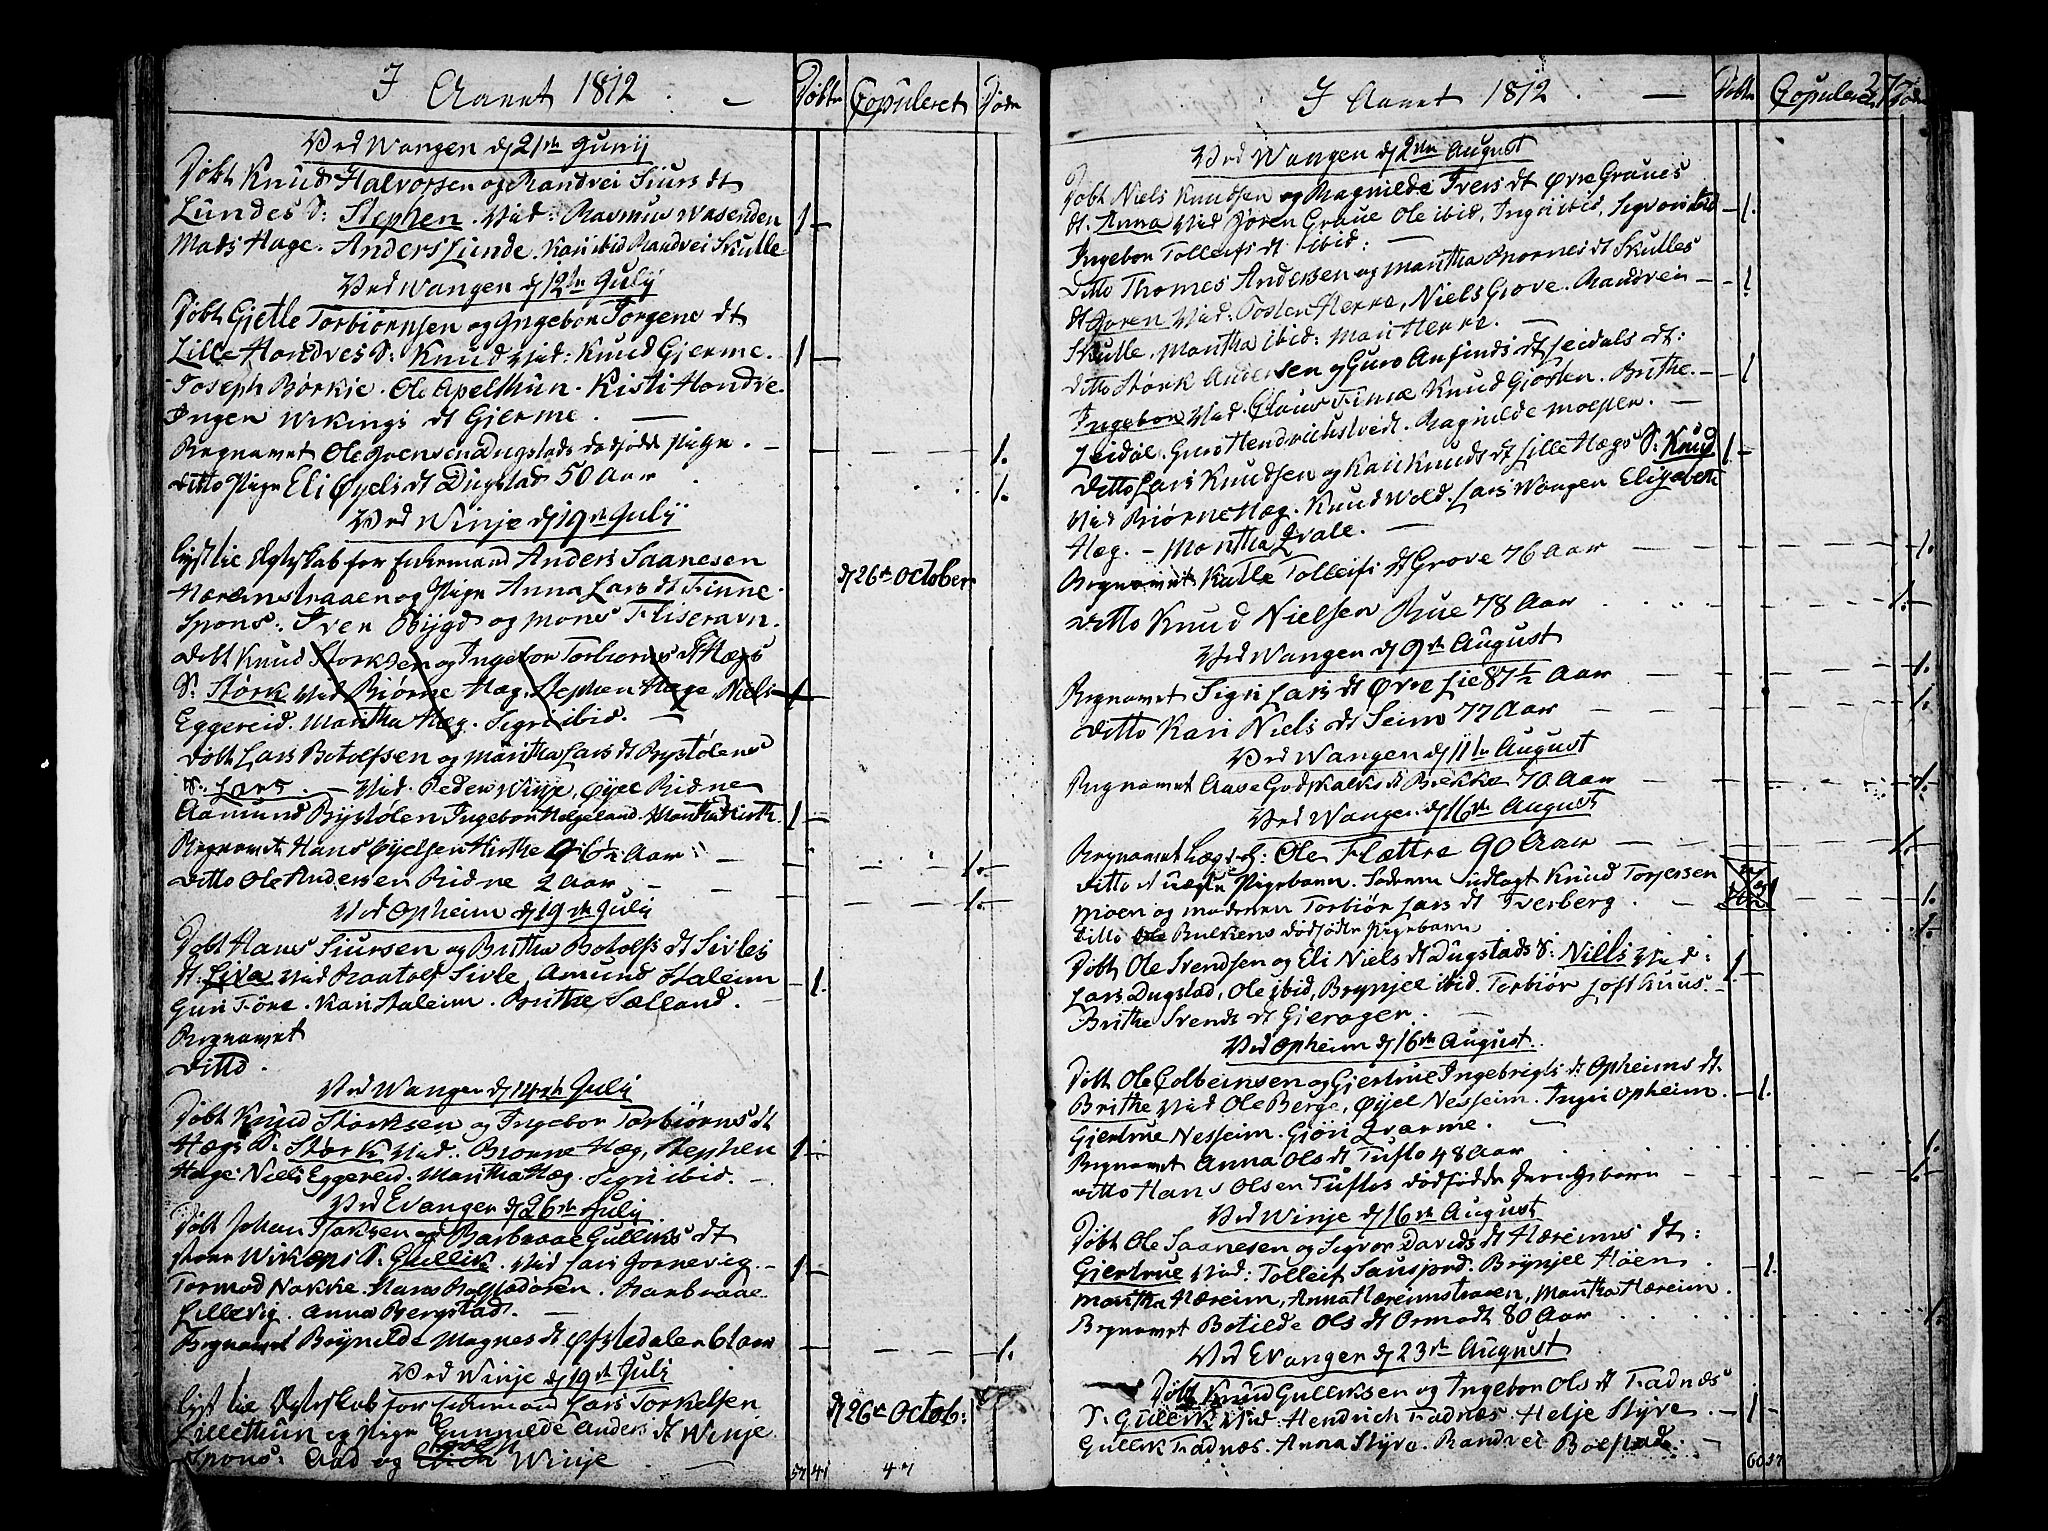 I Aaret 1812 Døbte Copuleret Døde
Ved Wangen d 21de Junij
Døbt Knud Halvorsen og Randvei Siurs dt
Lundes S: Stephen. Vid: Rasmus Wasenden 1
Mads Hage. Anders Lunde. Kari ibid Randvei Skulle
Ved Wangen d 12te Julij
Døbt Gjetle Torbiørnsen og Ingebor Torgens dt
Lille Hondves S: Knud Vid: Knud Gjerme. 1
Joseph Børkje. Ole Apelthun. Kisti Hondve
Inger Wikings dt Gjerme.
Begravet Ole Dugstads dødfødde Pige. 1.
ditto Pige Eli Øyels dt Dugstad 50 Aar 1.
Ved Winje d 19de Julij
lyst til Egteskab for Enkemand Anders Saanesen
Hæreimstraaen og Pige Anna Lars dt Finne. d 26de October
Spons: Iver Bÿgd og Mons Fliseravn.
Døbt Knud Storksen og Ingebor Torbiørns dt Hægs
S: Størk Vid Biørne Hæg. Stephen Hage. Niels 1
Eggereid. Maritha Hæg. Sigri ibid.
Døbt Lars Botolfsen og Maritha Lars dt Bystølens
S: Lars. Vid. Peder Winje, Øyel Ridne
Aamund Bystølen Ingebor Helgeland. Maritha Hirth. 1
Begravet Hans Øyelsen Hirthe 96½ Aar 1.
ditto Ole Andersen Ridne 2 Aar 1.
Ved Opheim d 19de Julij
Døbt Hans Siursen og Britha Botolfs dt Sivles
dt. Liva Vid Raatolf Sivle, Amund Haleim 1.
Guri Føre. Kari Haleim. Brithe Sælland.
Begravet
ditto.
Ved Wangen d 14de Julij
Døbt Knud Storksen og Ingebor Torbiørns dt
Hægs S: Størk Vid. Biørne Hæg, Stephen 1
Hage Niels Eggereid. Maritha Hæg. Sigri ibid.
Ved Evanger d 26de Julij
Døbt Johan Isaksen og Barbraae Gulliks dt
store Wikens S: Gullik. Vid Lars Jornevig. 1
Tormod Nakke. Hans Rafsadøren. Barbraae
Lillevig. Anna Bergstad.
Begravet Brynilde Magnes dt Øfstedalen 61 Aar 1.
Ved Winje d 19de Julij
lyst til Egteskab for Enkemand Lars Torkelsen
Lillethun og Pige Gunnilde Anders dt Winje d 26de Octob:
Spons: Aad og Winje
57 41 47
I Aaret 1812 Døbte Copuleret Døde
Ved Wangen d 2den August
Døbt Niels Knudsen og Ragnilde Ivers dt Øvre Graues
dt. Anna Vid Jøren Graue Ole ibid, Ingri ibid, Sigvor ibid 1.
Ingebor Tolleifs dt ibid:
ditto Thomes Andersen og Maritha Biørnes dt Skulles
dt Joren Vid. Tosten Herre, Niels Grove. Randvei 1.
Skulle. Maritha ibid: Mari Herre.
ditto Størk Andersen og Guro Anfinds dt Leidals dt: 1
Ingebor Vid. Claus Finne Knud Giøsten. Brithe.
Leidal. Guro Hendrichstvedt. Ragnilde Moepen.
ditto Lars Knudsen og Kari Knuds dt Lille Hægs S: Knud 1
Vid Biørne Hæg. Knud Wold. Lars Wangen Elisabeth
Hæg. Maritha Qvale.
Begravet Kistie Tolleifs dt Grove 76 Aar 1.
ditto Knud Nielsen Rue 78 Aar 1.
Ved Wangen d 9de August
Begravet Sigri Lars dt Øvre Lie 87½ Aar 1.
ditto Kari Niels dt Seim 77 Aar 1.
Ved Wangen d 11te August
Begravet Aase Godskalks dt Brekke 70 Aar 1.
Ved Wangen d 16de August
Begravet Lægd: Ole Flættre 90 Aar 1.
ditto et uægte Pigebarn. Faderen udlagt Knud Torjersen
Moen og moderen Torbiør Lars dt Tverberg. 1.
ditto Ole Bulkens dødfødte Pigebarn 1.
Døbt Ole Svendsen og Eli Niels dt Dugstads S: Niels Vid: 1
Lars Dugstad, Ole ibid, Brynjel ibid. Torbiør Lofthuus.
Brithe Svends dt Gierager.
Ved Opheim d 16de August.
Døbt Ole Colbeinsen og Gjertrue Ingebrigts dt Opheims dt.
Brithe Vid Ole Berge, Øyel Nesheim. Ingri Opheim. 1.
Gjertrue Nesheim. Giøri Qvarme.
Begravet Anna Ols dt Tufto 48 Aar 1.
ditto Hans Olsen Tuftes dødfødde Drengebarn 1.
Ved Winje d 16de August
Døbt Ole Saanesen og Sigvor Davids dt Hæreims dt:
Gjertrue Vid: Tolleif Saugved. Brynjel Høen 1.
Maritha Hæreim, Anna Hæreimstraaen, Maritha Hæreim.
Begravet Botilde Ols dt Ormodt 80 Aar 1.
Ved Evanger d 23de August
Døbt Knud Gulliksen og Ingebor Ols dt Fadnæs
S: Gullik Vid: Hendrich Fadnæs. Helje Styve. 1
Gullik Fadnæs. Anna Styve. Randvei Bolstad.
60 57